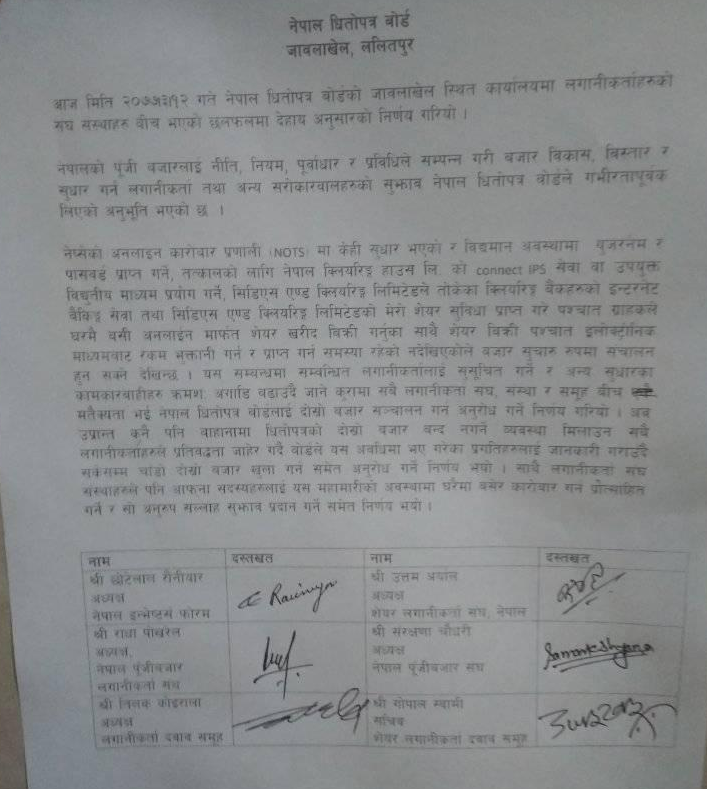 नेपाल धितोपत्र बोर्ड
जावलाखेल, ललितपुर
आज मिति २०७७।३।१२ गते नेपाल धितोपत्र बोर्डको जावलाखेल स्थित कार्यालयमा लगानीकर्ताहरुको
संघ संस्थाहरु बीच भएको छलफलमा देहाय अनुसारको निर्णय गरियो ।
नेपालको पूंजी बजारलाई नीति, नियम, पूर्वाधार र प्रविधिले सम्पन्न गरी बजार विकास, विस्तार र
सुधार गर्न लगानीकर्ता तथा अन्य सरोकारवालहरुको सुझाव नेपाल धितोपत्र बोर्डले गंभीरतापूर्वक
लिएको अनुभूति भएको छ ।
नेप्सेको अनलाइन कारोबार प्रणाली (NOTS) मा केही सुधार भएको र विद्यमान अवस्थामा युजरनेम र
पासवर्ड प्राप्त गर्ने, तत्कालको लागि नेपाल क्लियरिङ्ग हाउस लि. को connect IPS सेवा वा उपयुक्त
विद्युतीय माध्यम प्रयोग गर्ने, सिडिएस एण्ड क्लियरिङ्ग लिमिटेडले तोकेका क्लियरिङ्ग बैंकहरुको इन्टरनेट
बैंकिङ्ग सेवा तथा सिडिएस एण्ड क्लियरिङ्ग लिमिटेडको मेरो शेयर सुविधा प्राप्त गरे पश्चात ग्राहकले
घरमै बसी अनलाइन मार्फत शेयर खरीद बिक्री गर्नुका साथै शेयर बिक्री पश्चात इलेक्ट्रोनिक
माध्यमवाट रकम भुक्तानी गर्न र प्राप्त गर्न समस्या रहेको नदेखिएकोले बजार सुचारु रुपमा संचालन
हुन सक्ने देखिन्छ । यस सम्बन्धमा सम्बन्धित लगानीकर्तालाई सुसूचित गर्ने र अन्य सुधारका
कामकारवाहीहरु क्रमश: अगाडि बढाउदै जाने कुरामा सबै लगानीकर्ता संघ, संस्था र समूह बीच
मतैक्यता भई नेपाल धितोपत्र बोर्डलाई दोस्रो बजार सञ्चालन गर्न अनुरोध गर्ने निर्णय गरियो । अब
उप्रान्त कुनै पनि बाहानामा धितोपत्रको दोस्रो बजार बन्द नगर्ने व्यवस्था मिलाउन सबै
लगानीकर्ताहरुले प्रतिबद्धता जाहेर गर्दै बोर्डले यस अवधिमा भए गरेका प्रगतिहरुलाई जानकारी गराउदै
सकेसम्म चाँडो दोस्रो बजार खुला गर्न समेत अनुरोध गर्ने निर्णय भयो । साथै लगानीकर्ता संघ
संस्थाहरुले पनि आफ्ना सदस्यहरुलाई यस महामारीको अवस्थामा घरैमा बसेर कारोबार गर्न प्रोत्साहित
गर्ने र सो अनुरुप सल्लाह सुझाव प्रदान गर्ने समेत निर्णय भयो ।
नाम दस्तखत नाम दस्तखत
श्री छोटेलाल रौनीयार
अध्यक्ष
नेपाल इन्भेष्टर्स फोरम
श्री उत्तम अर्याल
अध्यक्ष
शेयर लगानीकर्ता संघ, नेपाल
श्री राधा पोखरेल
अध्यक्ष,
नेपाल पूंजीबजार
लगानीकर्ता संघ
श्री संरक्षणा चौधरी
अध्यक्ष
नेपाल पूंजीबजार संघ
श्री तिलक कोइराला
अध्यक्ष
लगानीकर्ता दवाव समूह
श्री गोपाल स्वामी
सचिव
शेयर लगानीकर्ता दवाव समूह